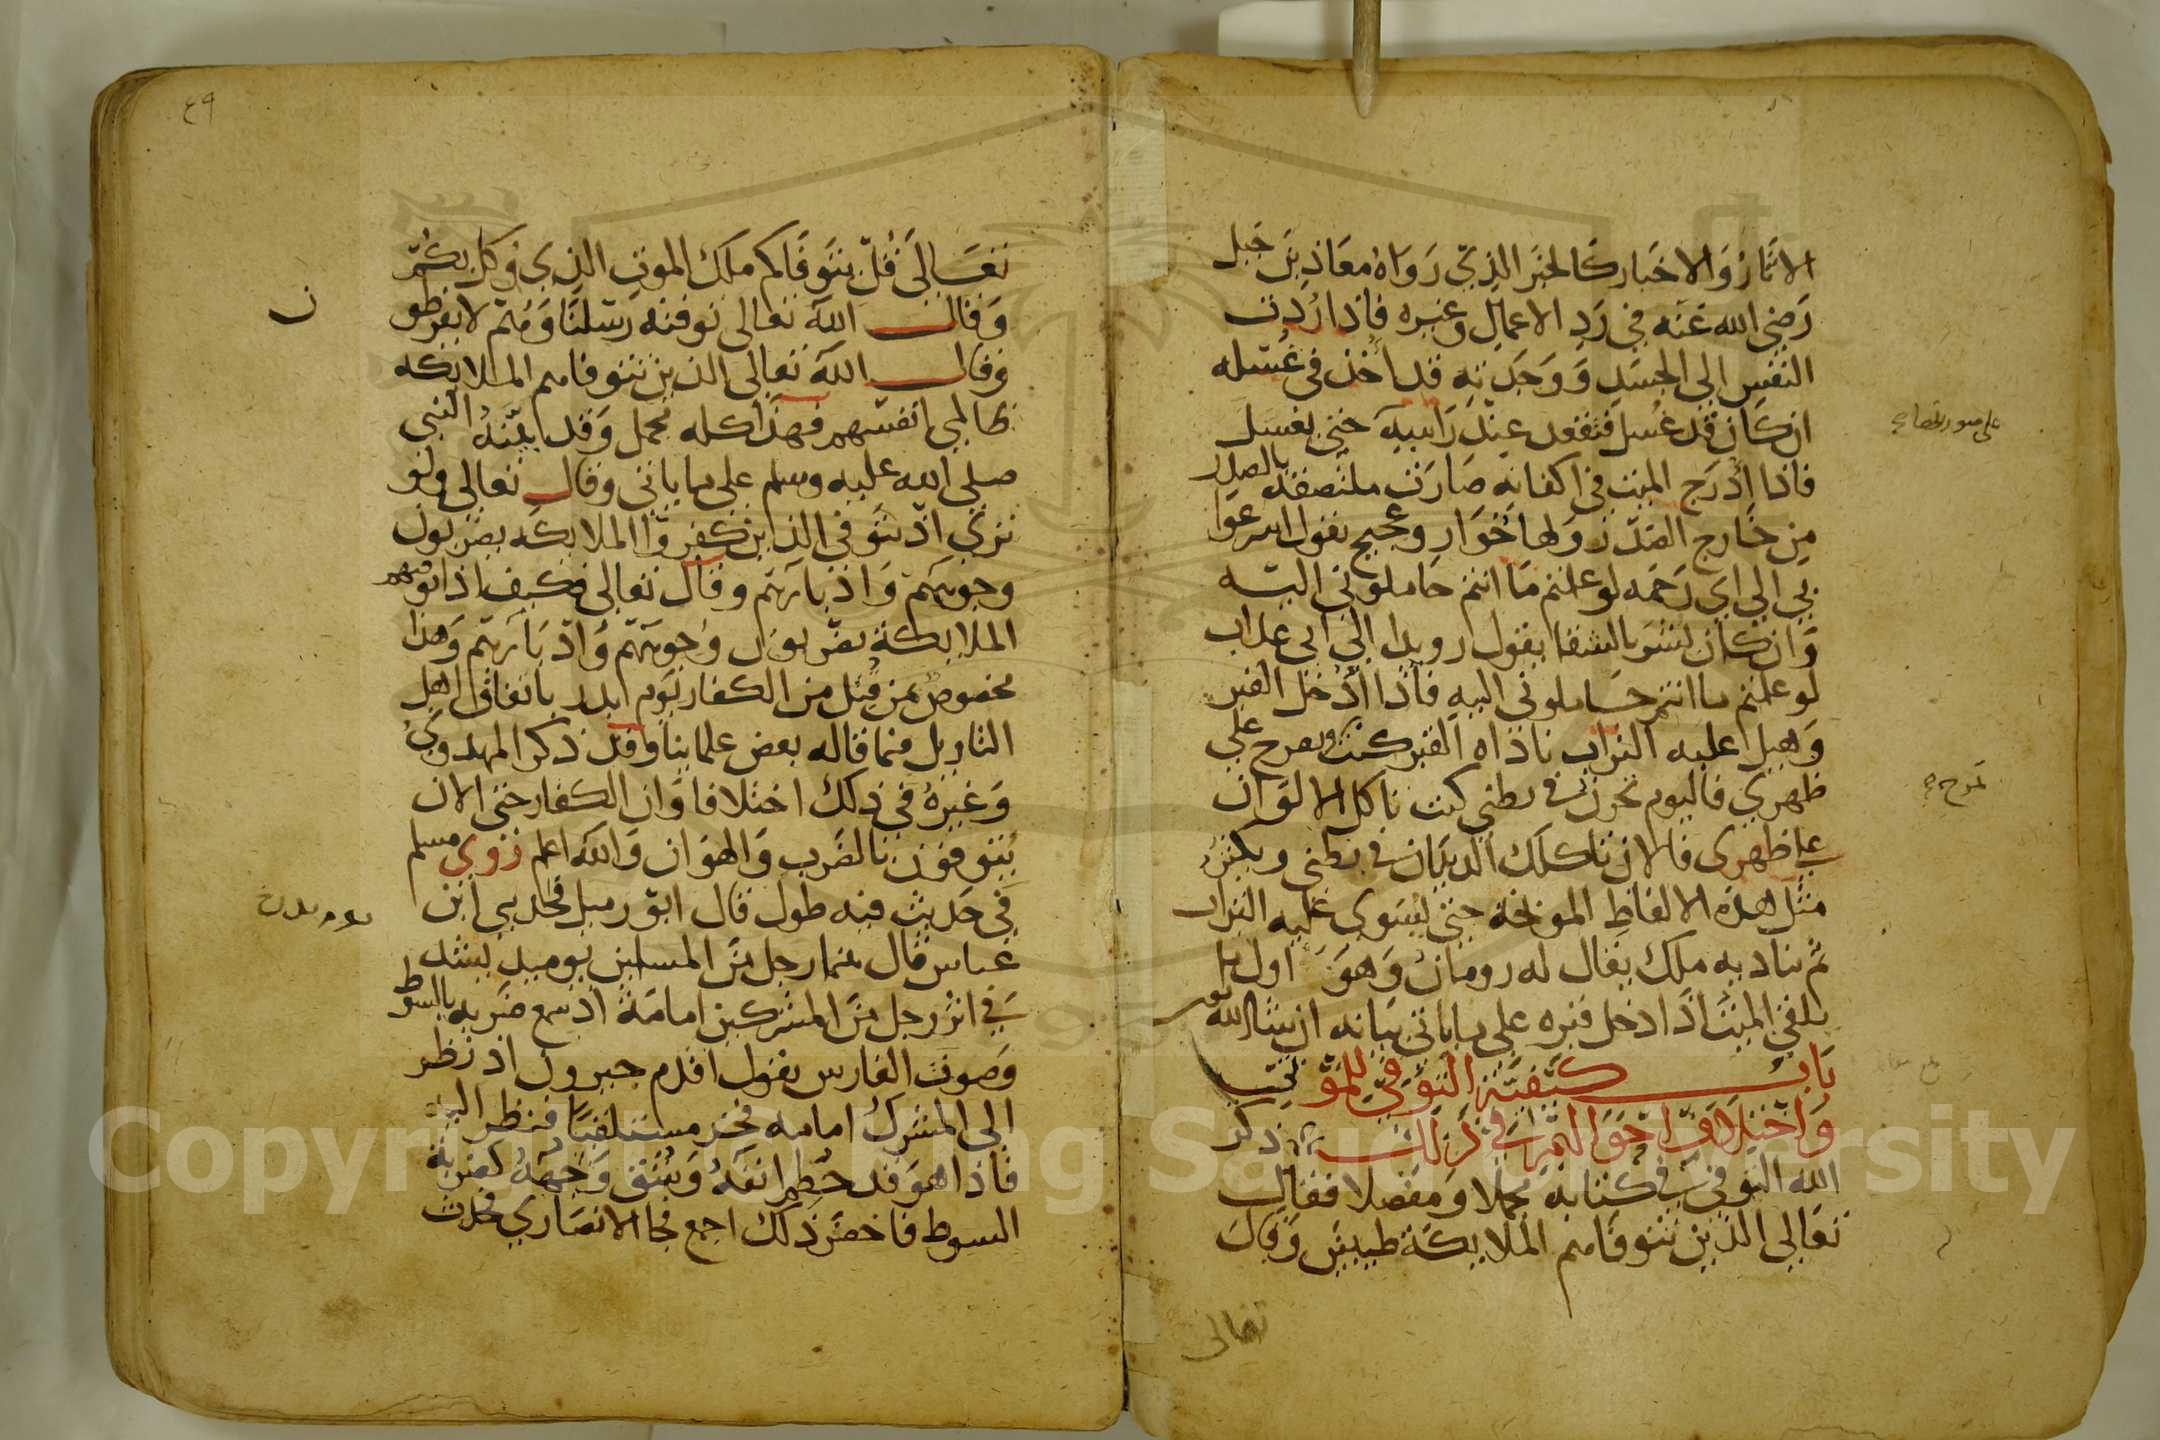 الاثار والاخبار كالخبر الذي رواه معاذ بن جبل
رضي الله عنه في رد الاعمال وغيره فاذا ردت
النفس الى الجسد ووجدته قد اخذ في غسله
ان كان قد غسل فتقعد عند راسه حتى يغسل
فاذا ادرج الميت في اكفانه صارت ملتصقة بالصدر
من خارج الصدر ولها خوار وعجيج تقول اسرعوا
بي الى اي رحمه لو علمتم ما انتم حاملوني اليه
وان كان بشر بالشقا يقول رويدا الى اي عذاب
لو علمتم ما انتم حاملوني اليه فاذا ادخل القبر
وهيل عليه التراب ناداه القبر كنت تمرح على
ظهري فاليوم تحزن في بطني كنت تاكل الالوان
على ظهري فالان تاكلك الديدان في بطني ويكثر
مثل هذه الالفاظ الموبخة حتى يسوى عليه التراب
ثم يناديه ملك يقال له رومان وهو اول ما
يلقى الميت اذا دخل قبره على ما ياتي بيانه ان شا الله تعالى
باب كيفية التوفي للموتى
واختلاف احوالهم في ذلك ذكر
الله التوفي في كتابه مجملا ومفصلا فقال
تعالى الذين تتوفاهم الملايكة طيبين وقال
تعالى
تعالى قل يتوفاكم ملك الموت الذي وكل بكم
وقال الله تعالى توفته رسلنا وهم لا يفرطو
ن
وقال الله تعالى الذين تتوفاهم الملايكه
ظالمي انفسهم فهذا كله مجمل وقد بينه النبي
صلى الله عليه وسلم على ما ياتي وقال تعالى ولو
ترى اذ يتوفى الذين كفروا الملايكه يضربون
وجوههم وادبارهم وقال تعالى فكيف اذا توفتهم
الملايكة يضربون وجوههم وادبارهم وهذا
مخصوص بمن قتل من الكفار يوم بدر باتفاق اهل
التاويل فيما قاله بعض علماينا وقد ذكر المهدوي
وغيره في ذلك اختلافا وان الكفار حتى الان
يتوفون بالضرب والهوان والله اعلم روى مسلم
في حديث فيه طول قال ابو زميل فحدثني ابن
عباس قال بينما رجل من المسلمين يوميذ يشتد
في اثر رجل من المشركين امامه اذ سمع ضربه بالسوط
وصوت الفارس يقول اقدم حيزوم اذ نظر
الى المشرك امامه فخر مستلقيا فنظر اليه
فاذا هو قد حطم انفه وشق وجهه كضربة
السوط فاخضر ذلك اجمع فجا الانصاري فحدث
٤٩
Copyright © King Saud University